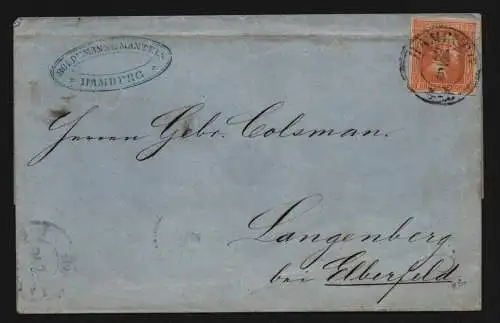 HAMBURG
HAMBURG
Herren Gebr. Colsman.
Langenberg
bei Elberfeld.